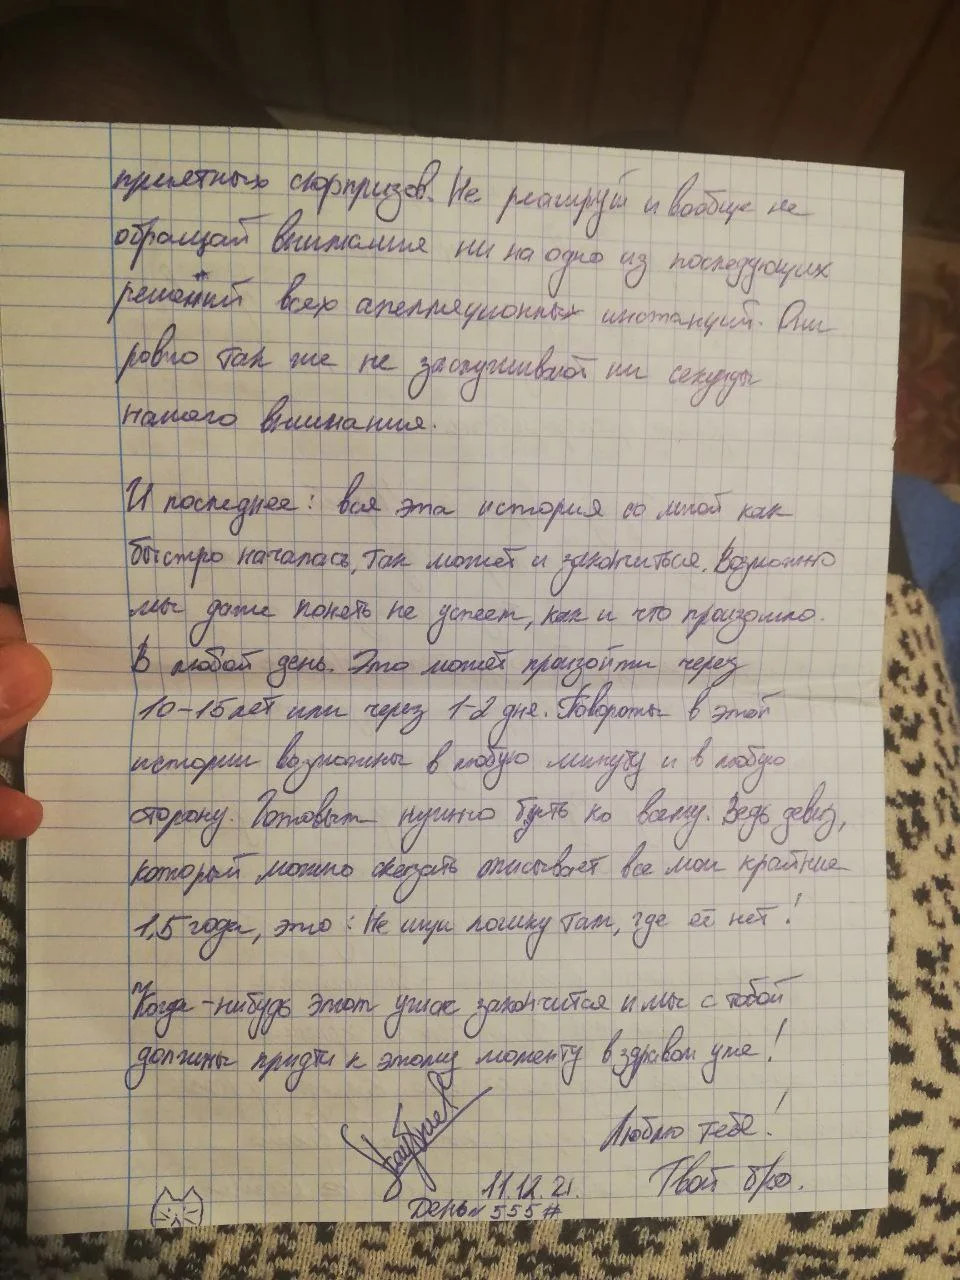 приятных сюрпризов. Не реагируй и вообще не
обращай внимания ни на одно из последующих
решений всех апелляционных инстанций. Они
ровно так же не заслуживают ни секунды
нашего внимания.
И последнее: вся эта история со мной как
быстро началась, так может и закончиться. Возможно
мы даже понять не успеем, как и что произошло.
В любой день. Это может произойти через
10-15 лет или через 1-2 дня. Повороты в этой
истории возможны в любую минуту и в любую
сторону. Готовым нужно быть ко всему. Ведь девиз,
который можно сказать описывает все мои крайние
1,5 года, это: Не ищи логику там, где её нет!
Когда-нибудь этот ужас закончится и мы с тобой
должны придти к этому моменту в здравом уме!
Люблю тебя!
Твой бро.
11.12.21.
День 555#